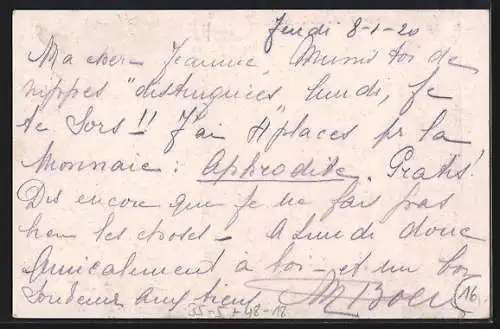 Jeudi 8-1-20
Ma cher Jeanne Munis toi de
nippes "distinguées" lundi, je
te sors!! J'ai 4 places pr la
Monnaie: Aphrodite. Gratis!
Dis encore que je ne fais pas
bien les choses - A lundi donc
Amicalement à toi - et un bon
souvenir aux tiens
16
35-5 + 48-18